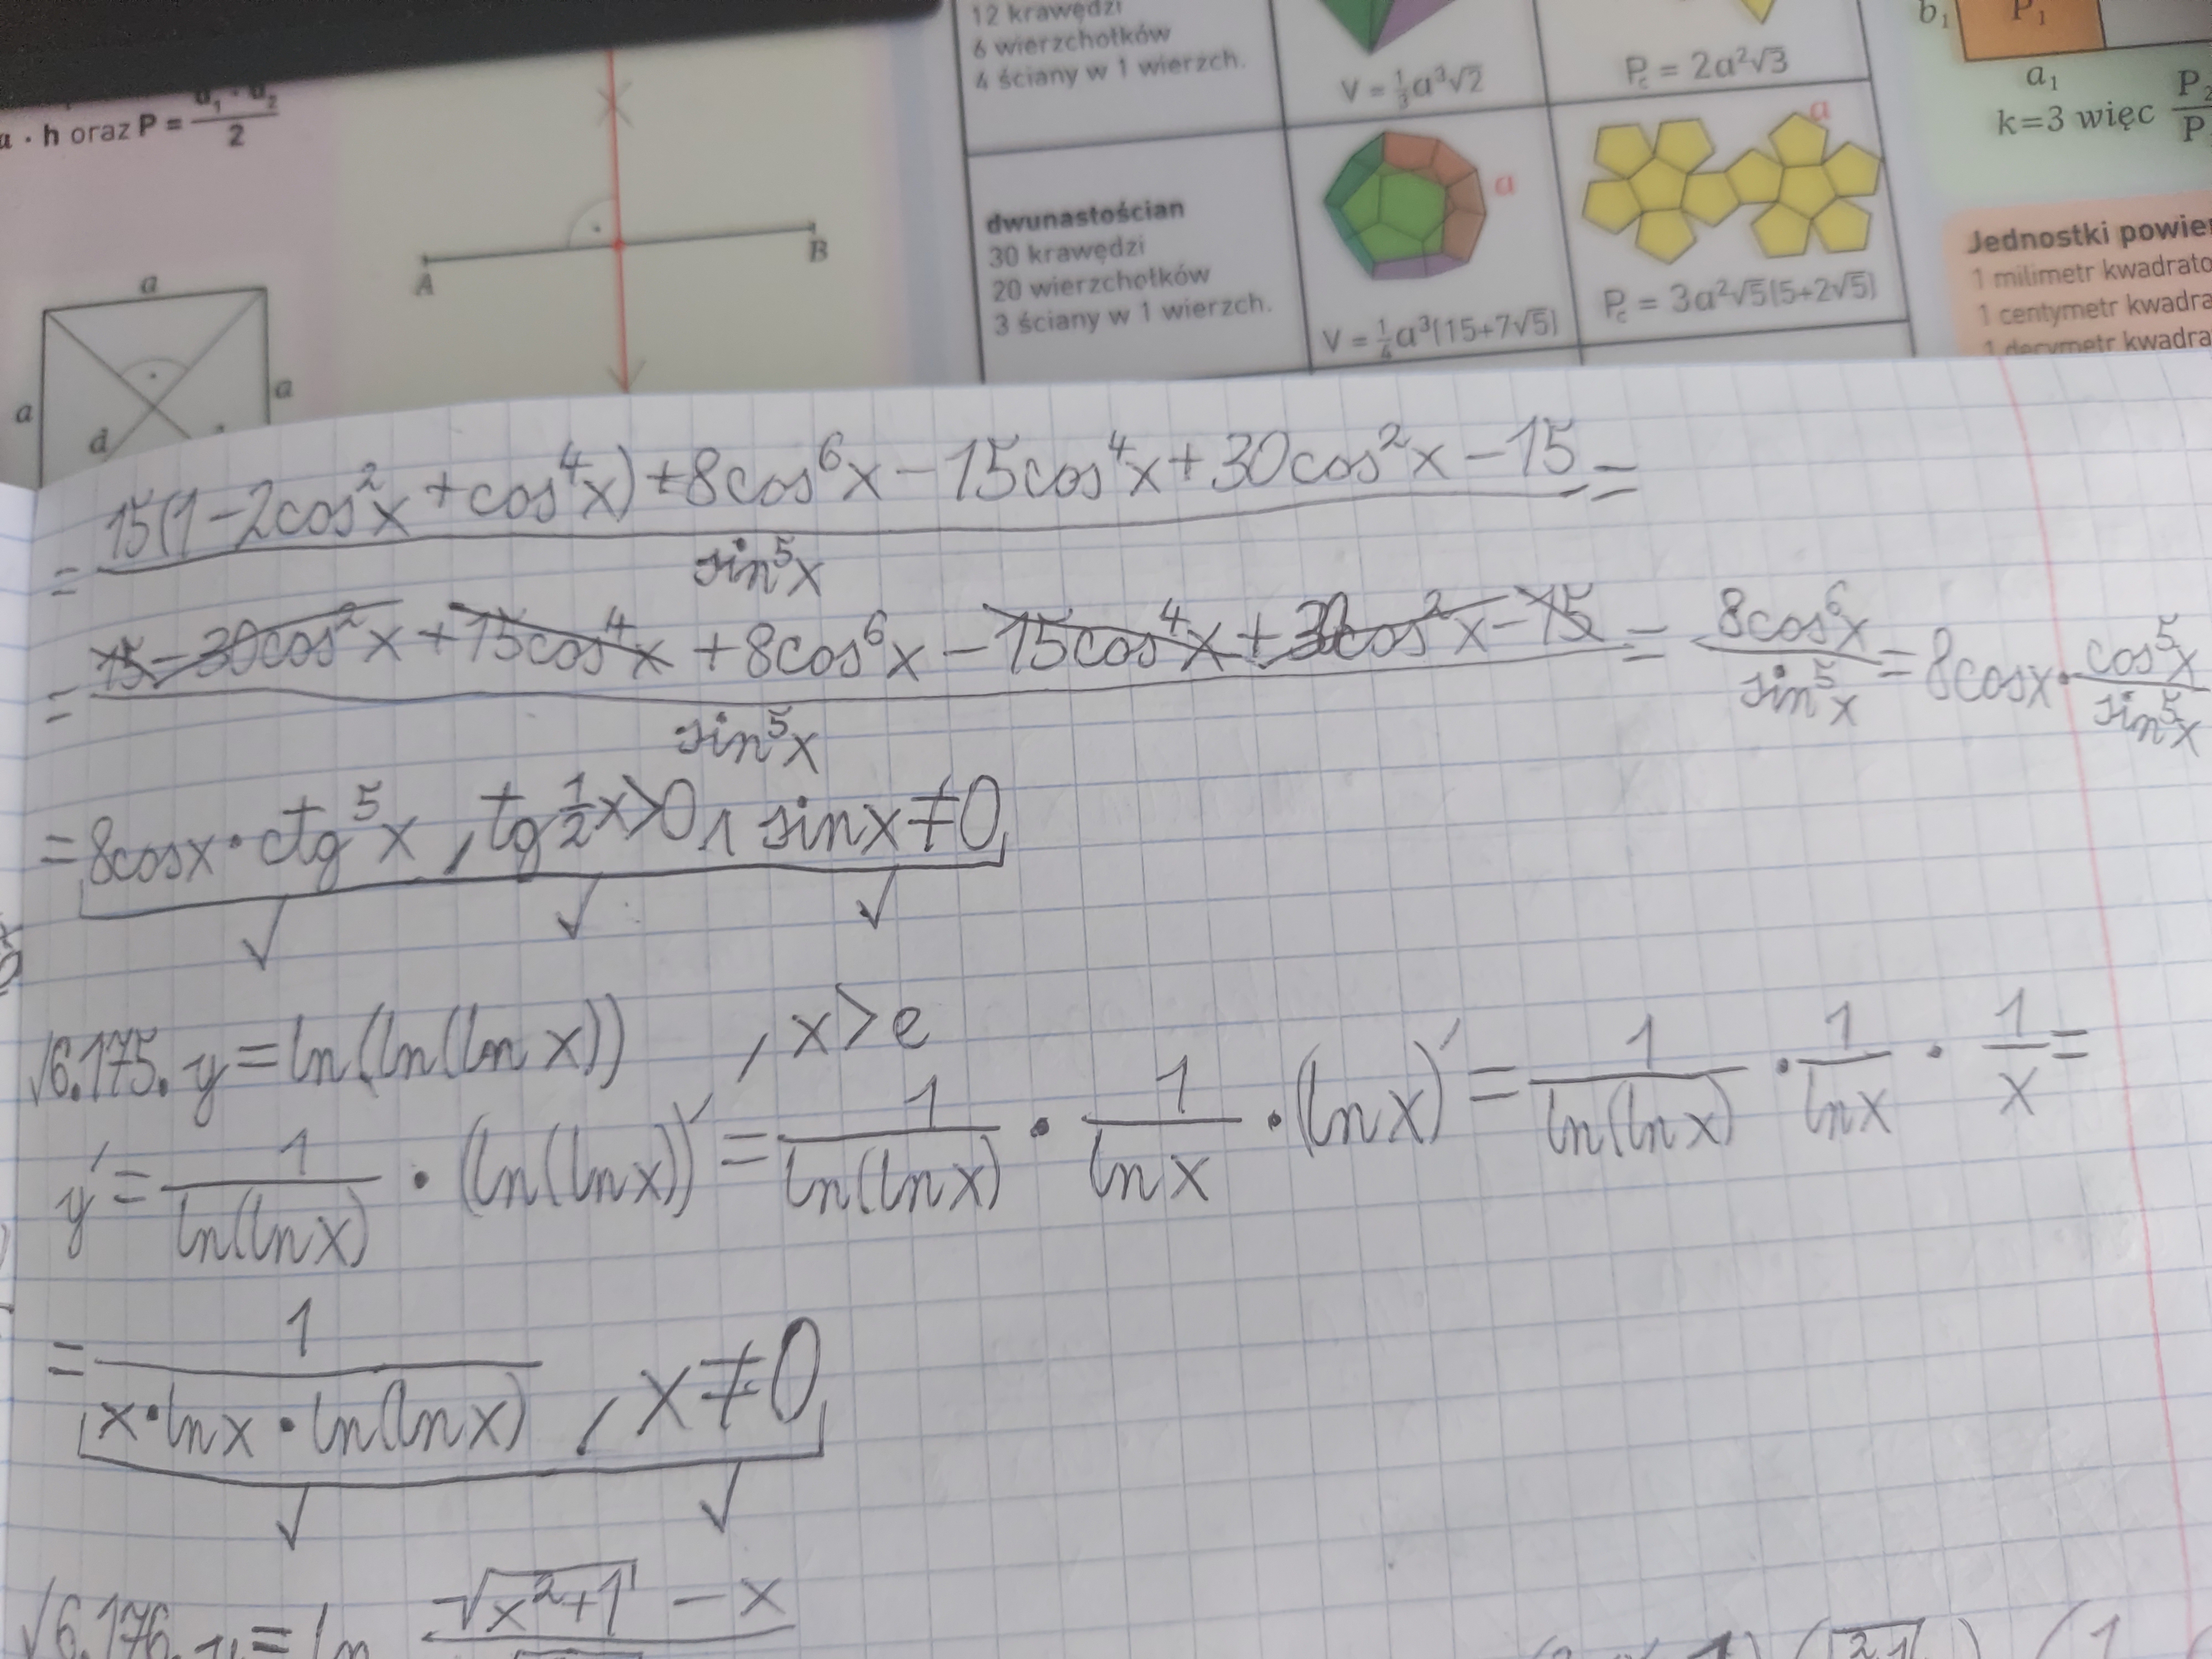 12 krawędzi
6 wierzchołków
4 ściany w 1 wierzch.
V = 1/3 a³√2
P_c = 2a²√3
b₁ P₁
a₁
k=3 więc P₂/P
a · h oraz P = d₁ · d₂ / 2
A B
a
a a
d
dwunastościan
30 krawędzi
20 wierzchołków
3 ściany w 1 wierzch.
a
V = 1/4 a³(15+7√5)
a
P_c = 3a²√5(5+2√5)
Jednostki powie
1 milimetr kwadrato
1 centymetr kwadra
1 decymetr kwadra
= (15(1-2cos²x+cos⁴x)+8cos⁶x-15cos⁴x+30cos²x-15) / sin⁵x =
= (15-30cos²x+15cos⁴x+8cos⁶x-15cos⁴x+30cos²x-15) / sin⁵x = 8cos⁶x / sin⁵x = 8cosx · cos⁵x / sin⁵x
= 8cosx · ctg⁵x , tg ½x>0 ∧ sinx≠0
√6.175. y = ln(ln(ln x)) , x>e
y' = 1/ln(lnx) · (ln(lnx))' = 1/ln(lnx) · 1/lnx · (lnx)' = 1/ln(lnx) · 1/lnx · 1/x =
= 1/(x·lnx·ln(lnx)) , x≠0
√6.176. y = ln √x²+1 - x